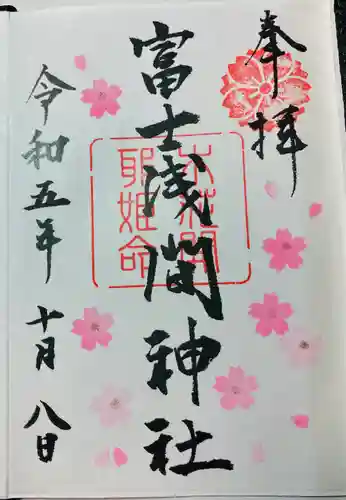 奉拝
富士浅間神社
木花開
耶姫命
令和五年 十月 八日